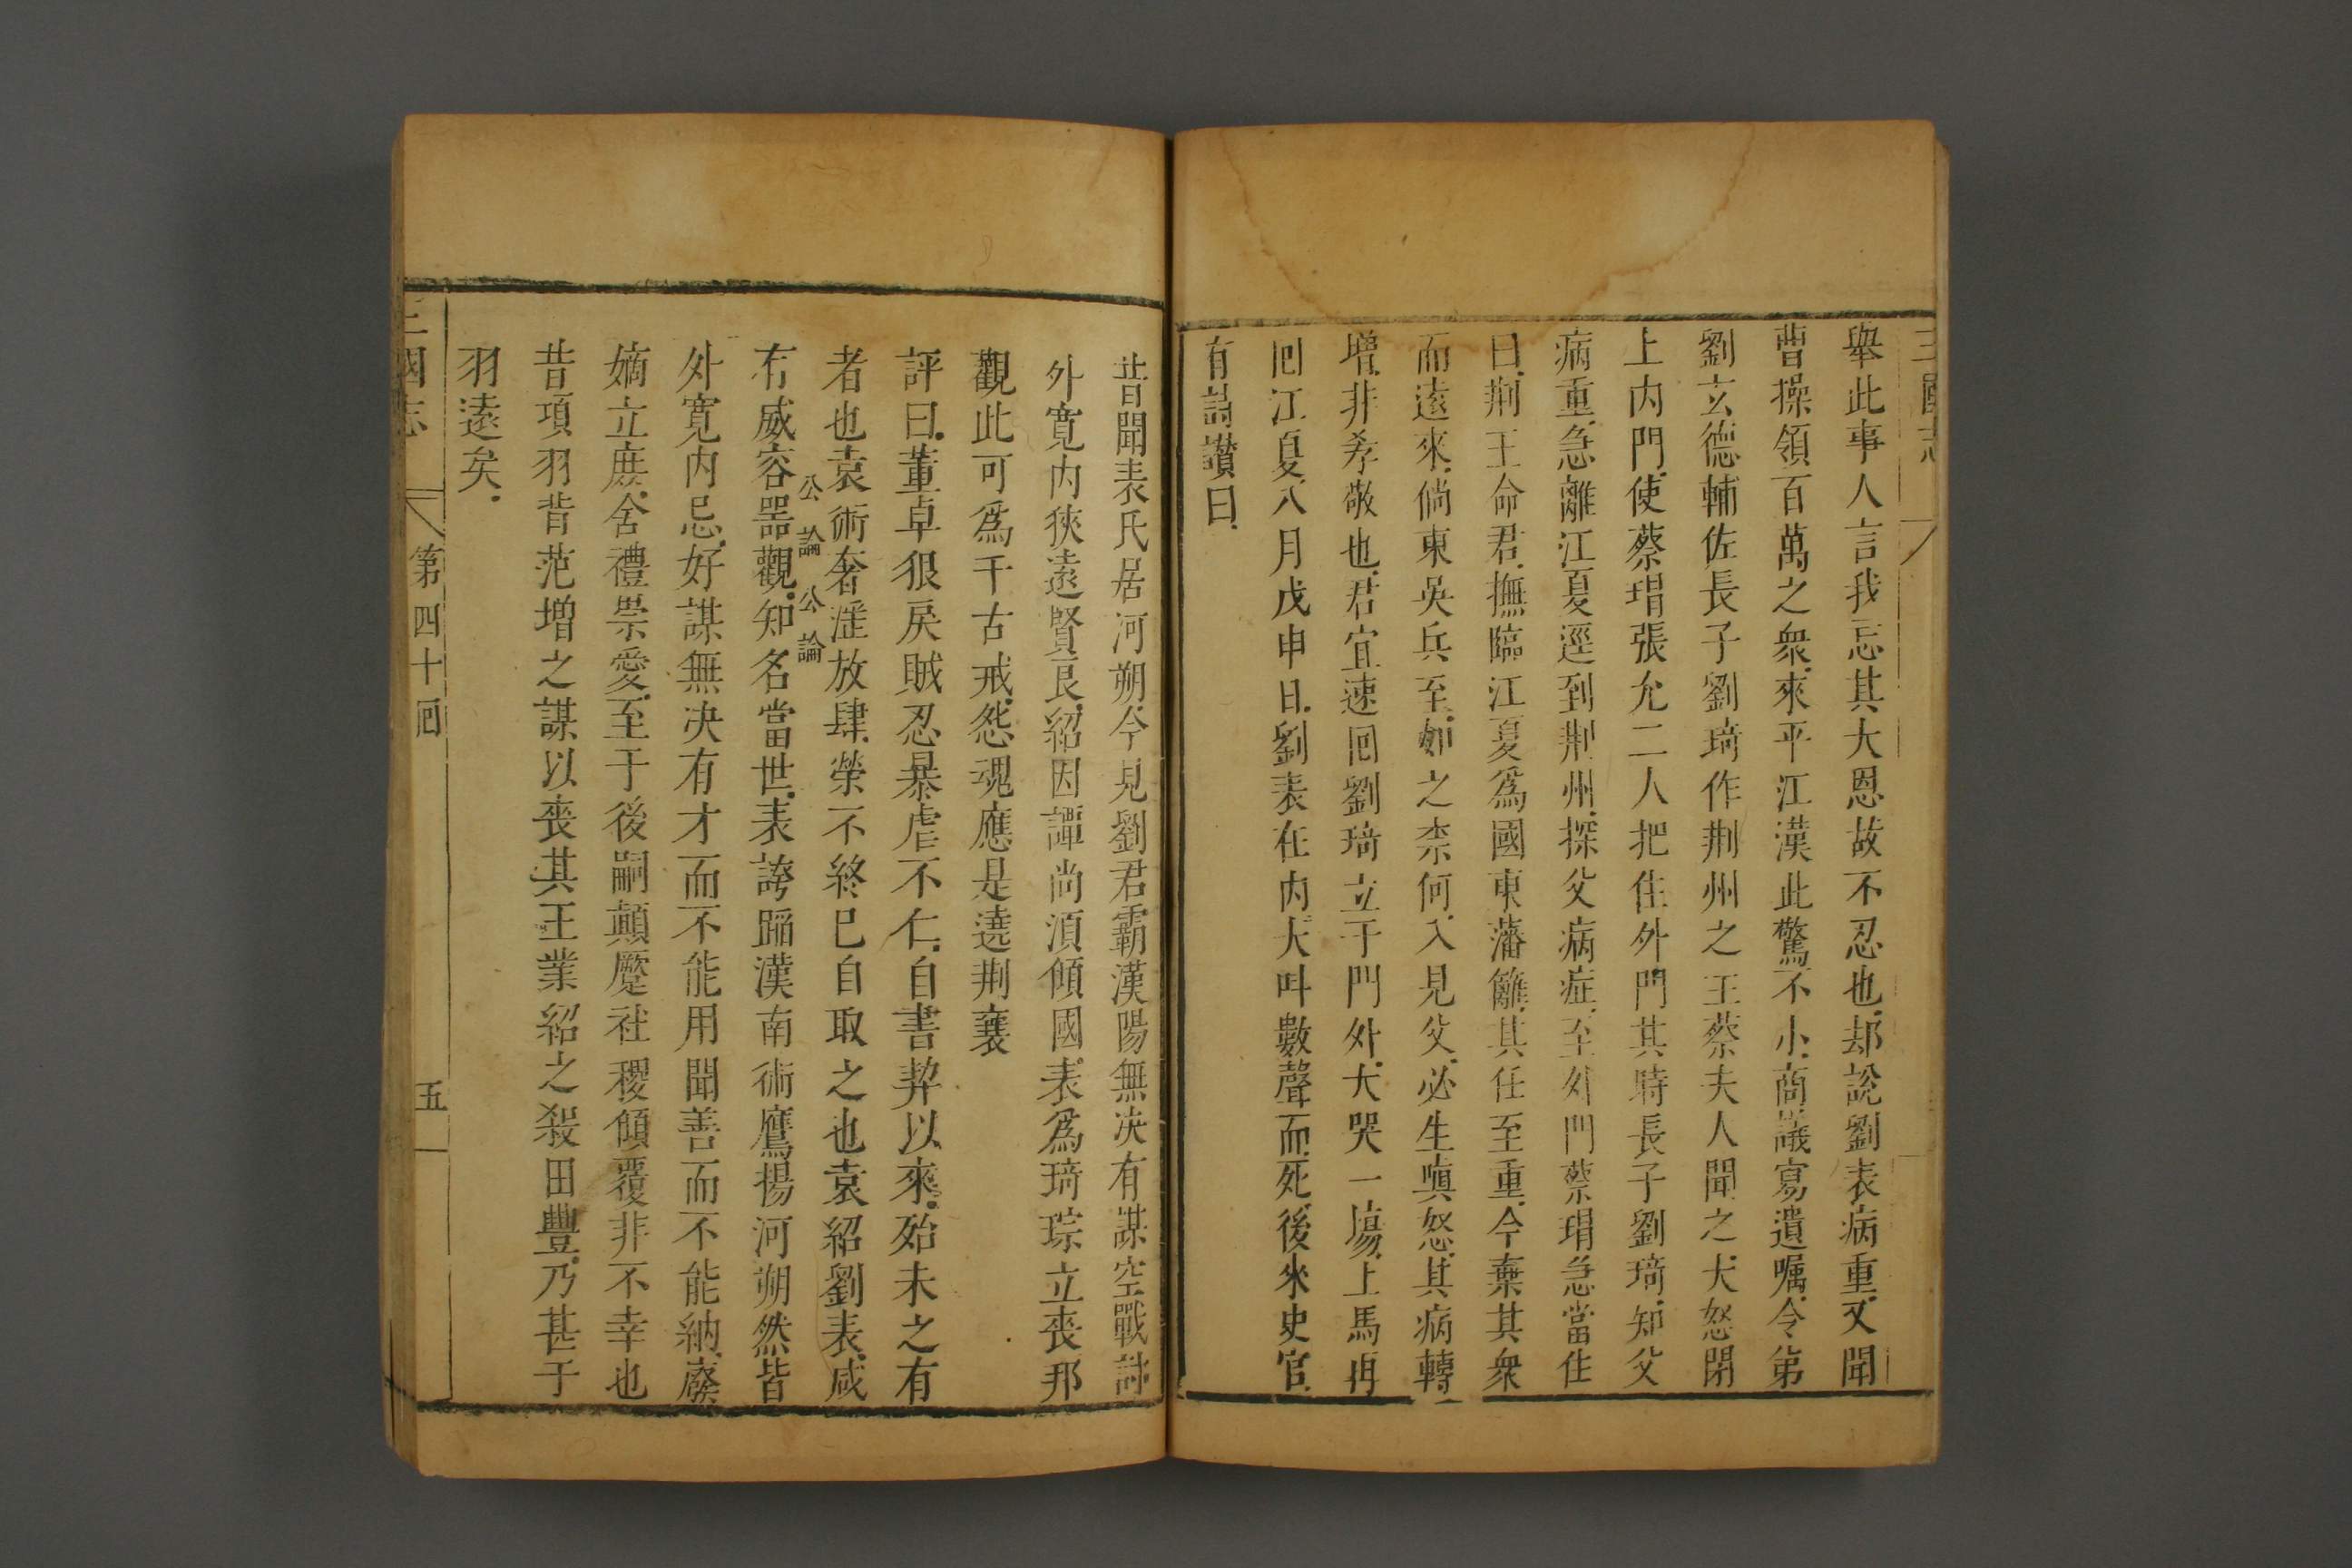 三國志
舉此事人言我忘其大恩故不忍也却說劉表病重又聞
曹操領百萬之衆來平江漢此驚不小商議寫遺囑令第
劉玄德輔佐長子劉琦作荆州之王蔡夫人聞之大怒閉
上内門使蔡瑁張允二人把住外門其時長子劉琦知父
病重急離江夏逕到荆州探父病症至外門蔡瑁急當住
曰荆王命君撫臨江夏爲國東藩籬其任至重今棄其衆
而遠來倘東吳兵至如之柰何入見父必生嗔怒其病轉
增非孝敬也君宜速囘劉琦立于門外大哭一塲上馬再
囘江夏八月戊申日劉表在内大叫數聲而死後來史官
有詩讃曰
昔聞袁氏居河朔今見劉君霸漢陽無决有謀空戰討
外寛内狹遠賢良紹因譚尚湏傾國表爲琦琮立喪邦
觀此可爲千古戒怨魂應是遶荆襄
評曰董卓狠戾賊忍暴虐不仁自書契以來殆未之有
者也袁術奢滛放肆榮不終巳自取之也袁紹劉表咸
公論公論
有威容噐觀知名當世表誇蹈漢南術鷹揚河朔然皆
外寛内忌好謀無决有才而不能用聞善而不能納廢
嫡立庶舍禮崇愛至于後嗣顛蹷社稷傾覆非不幸也
昔項羽背范增之謀以喪其王業紹之殺田豐乃甚于
羽遠矣
三國志 第四十囘 五